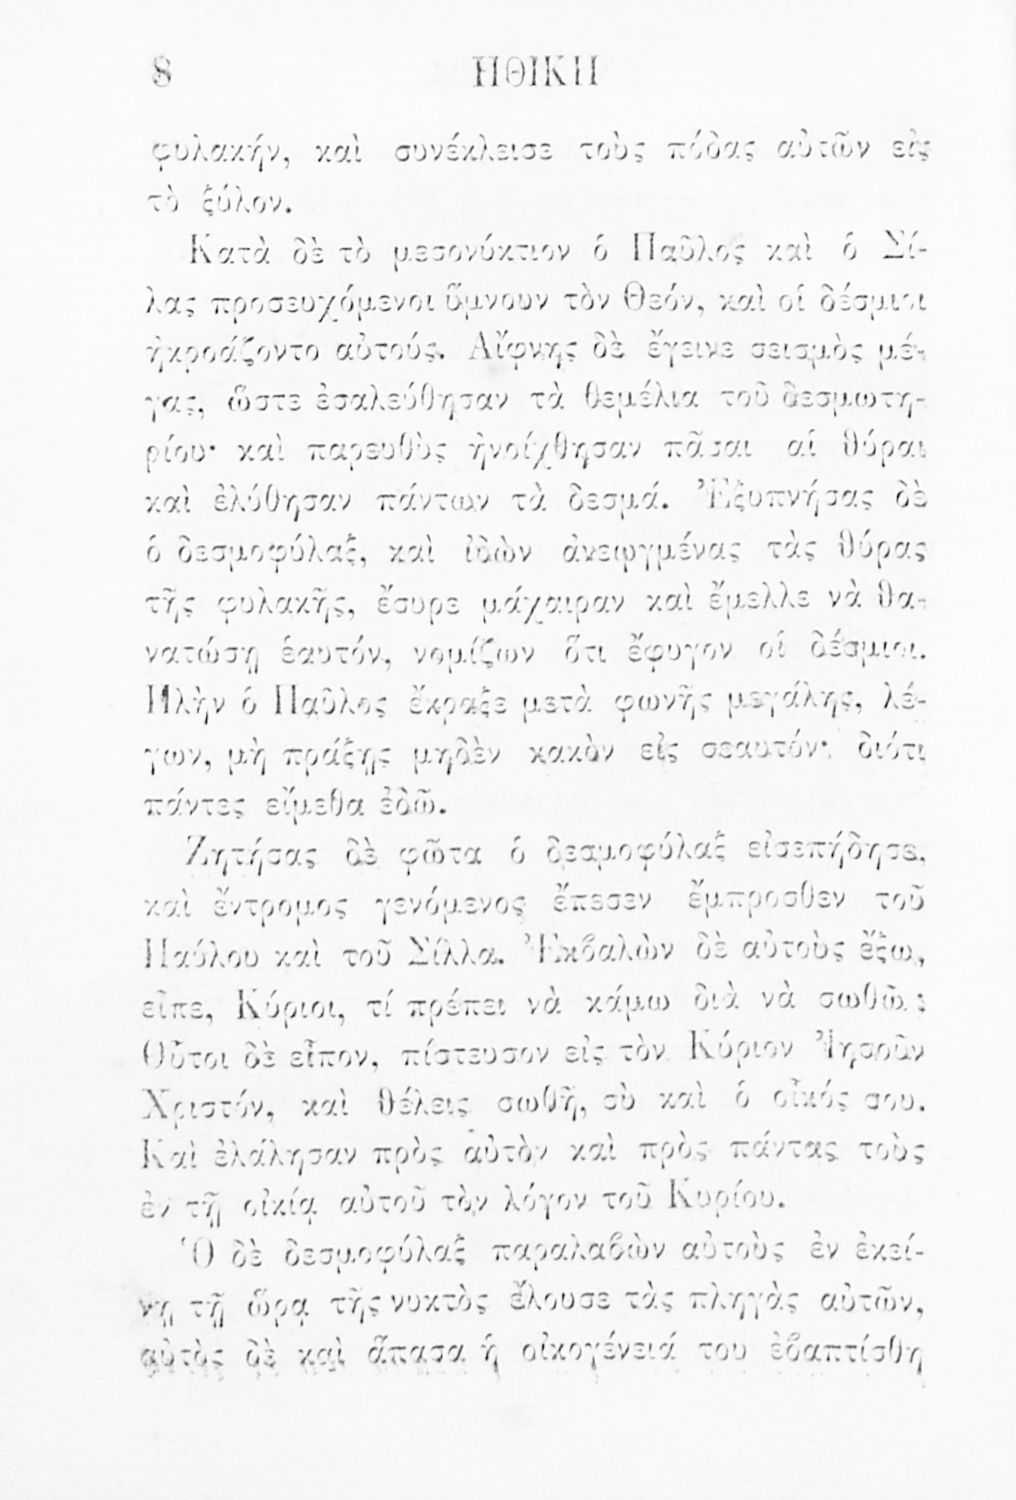 8 ΗΘΙΚΗ
φυλακήν, καὶ συνέκλεισε τοὺς πόδας αὐτῶν εἰς
τὸ ξύλον.
Κατὰ δὲ τὸ μεσονύκτιον ὁ Παῦλος καὶ ὁ Σί-
λας προσευχόμενοι ὕμνουν τὸν Θεόν, καὶ οἱ δέσμιοι
ἠκροάζοντο αὐτούς. Αἴφνης δὲ ἔγεινε σεισμὸς μέ-
γας, ὥστε ἐσαλεύθησαν τὰ θεμέλια τοῦ δεσμωτη-
ρίου· καὶ παρευθὺς ἠνοίχθησαν πᾶσαι αἱ θύραι
καὶ ἐλύθησαν πάντων τὰ δεσμά. Ἐξυπνήσας δὲ
ὁ δεσμοφύλαξ, καὶ ἰδὼν ἀνεῳγμένας τὰς θύρας
τῆς φυλακῆς, ἔσυρε μάχαιραν καὶ ἔμελλε νὰ θα-
νατώσῃ ἑαυτόν, νομίζων ὅτι ἔφυγον οἱ δέσμιοι.
Πλὴν ὁ Παῦλος ἔκραξε μετὰ φωνῆς μεγάλης, λέ-
γων, μὴ πράξῃς μηδὲν κακὸν εἰς σεαυτόν· διότι
πάντες εἴμεθα ἐδῶ.
Ζητήσας δὲ φῶτα ὁ δεσμοφύλαξ εἰσεπήδησε,
καὶ ἔντρομος γενόμενος ἔπεσεν ἔμπροσθεν τοῦ
Παύλου καὶ τοῦ Σίλλα. Ἐκβαλὼν δὲ αὐτοὺς ἔξω,
εἶπε, Κύριοι, τί πρέπει νὰ κάμω διὰ νὰ σωθῶ;
Οὗτοι δὲ εἶπον, πίστευσον εἰς τὸν Κύριον Ἰησοῦν
Χριστόν, καὶ θέλεις σωθῆ, σὺ καὶ ὁ οἶκός σου.
Καὶ ἐλάλησαν πρὸς αὐτὸν καὶ πρὸς πάντας τοὺς
ἐν τῇ οἰκίᾳ αὐτοῦ τὸν λόγον τοῦ Κυρίου.
Ὁ δὲ δεσμοφύλαξ παραλαβὼν αὐτοὺς ἐν ἐκεί-
νῃ τῇ ὥρᾳ τῆς νυκτὸς ἔλουσε τὰς πληγὰς αὐτῶν,
αὐτὸς δὲ καὶ ἅπασα ἡ οἰκογένειά του ἐβαπτίσθη